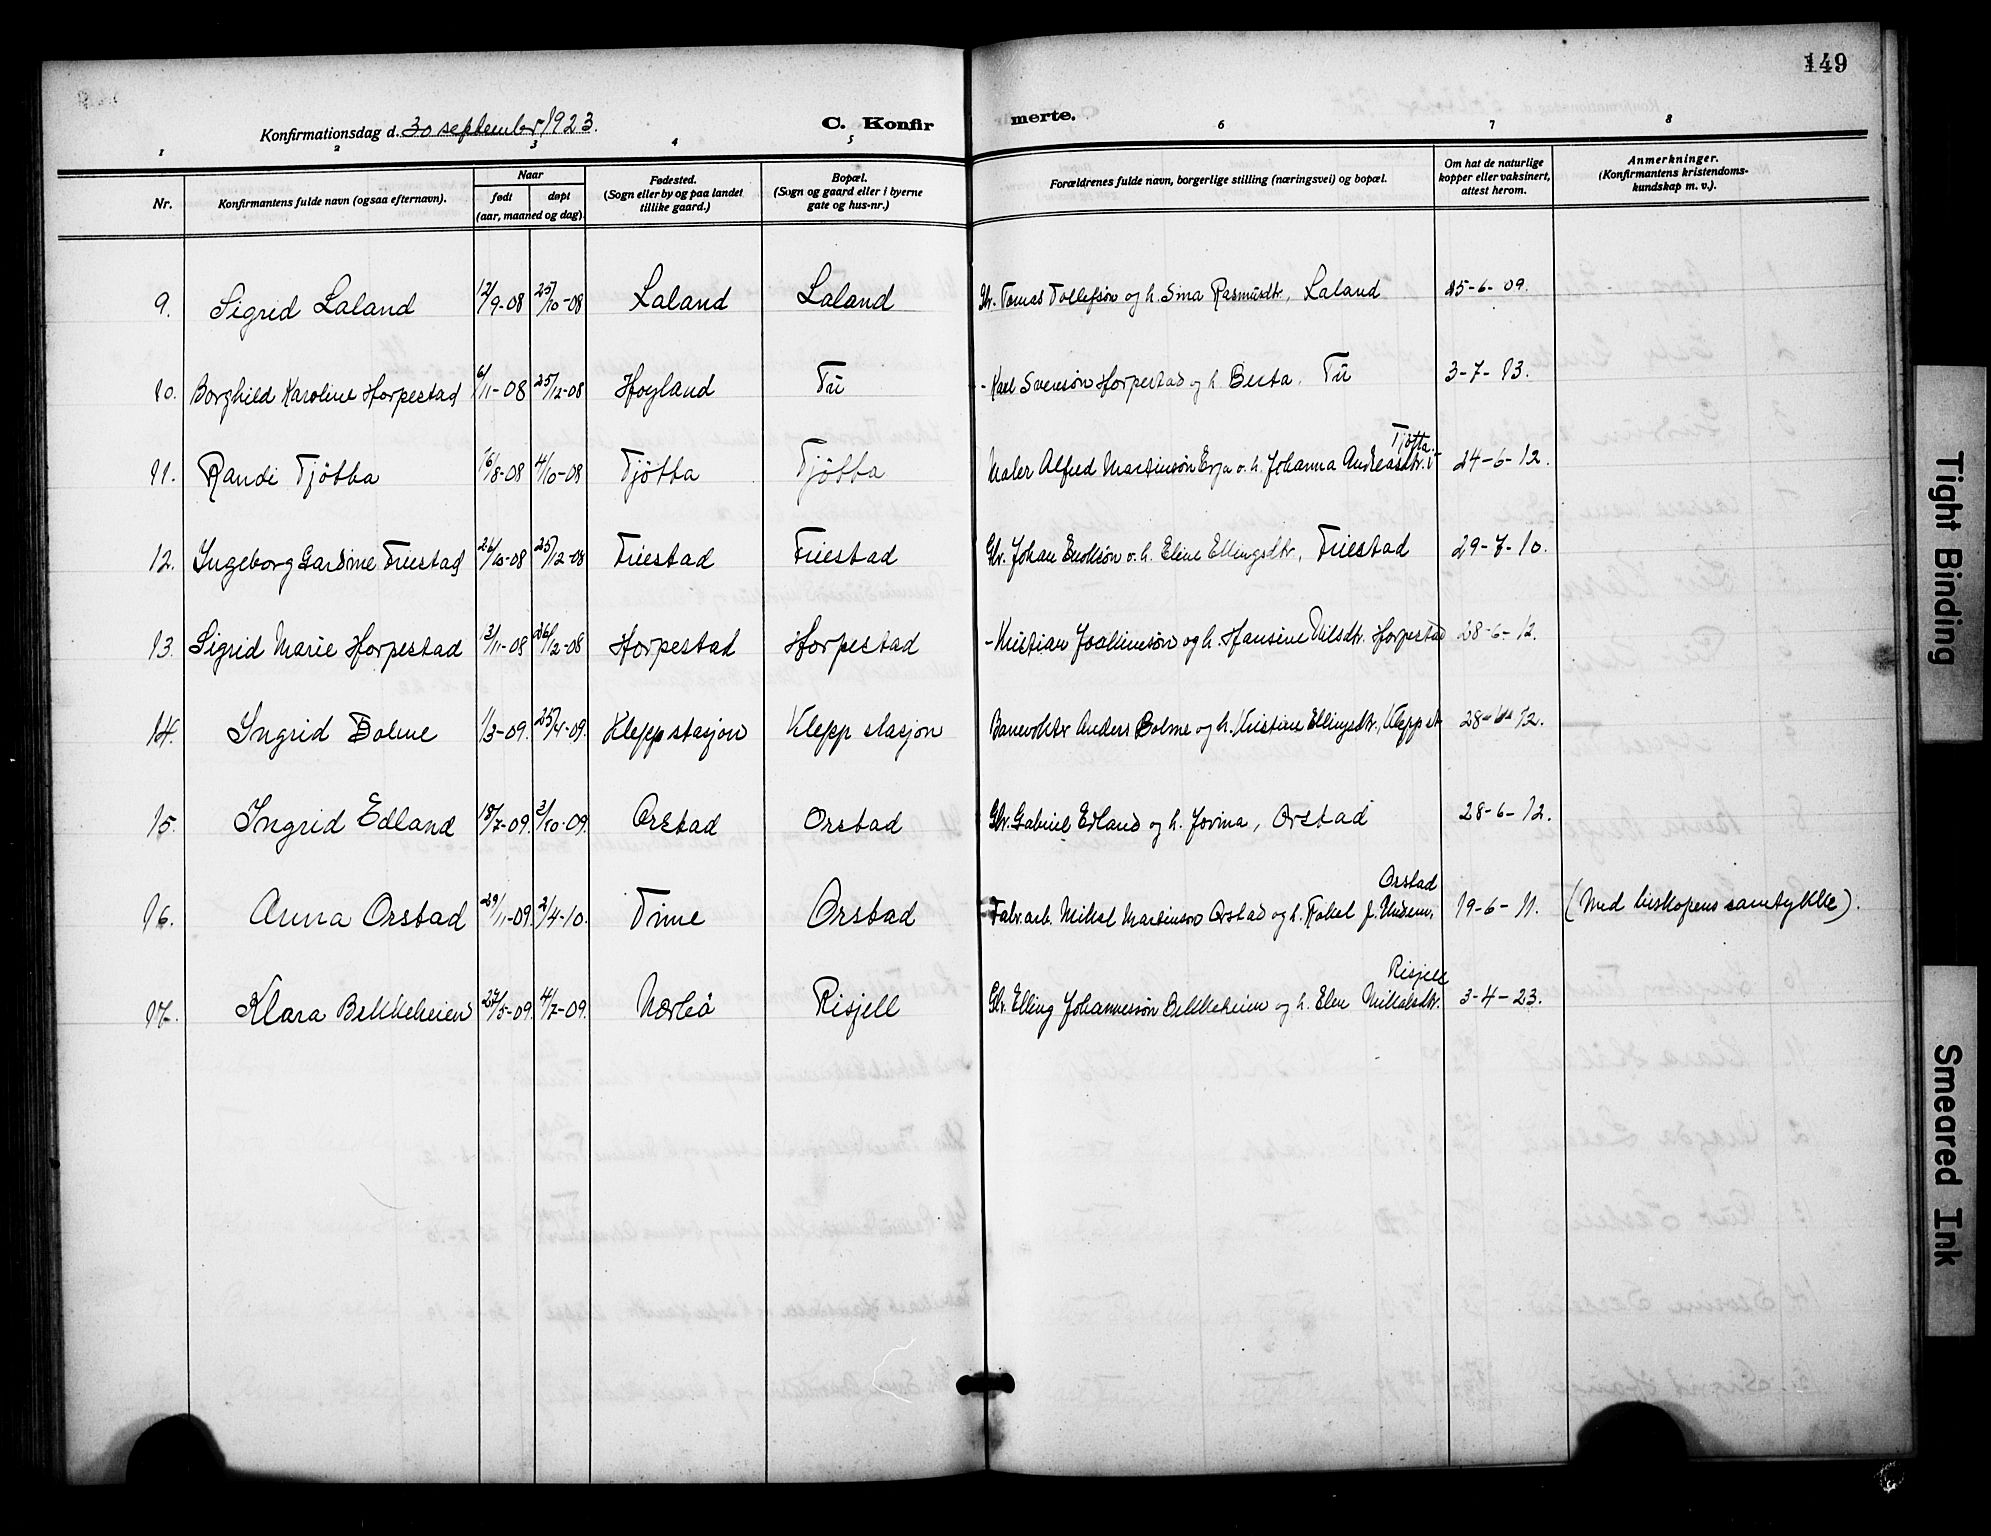 149
Konfirmationsdag d. 30 september 1923.
C. Konfirmerte.
1 2 3 4 5 6 7 8
Nr. Konfirmantens fulde navn (ogsaa efternavn). Naar født døpt (aar, maaned og dag). Fødested. (Sogn eller by og paa landet tillike gaard.) Bopæl. (Sogn og gaard eller i byerne gate og hus-nr.) Forældrenes fulde navn, borgerlige stilling (næringsvei) og bopæl. Om hat de naturlige kopper eller vaksinert, attest herom. Anmerkninger. (Konfirmantens kristendomskundskap m. v.).
9. Sigrid Laland 12/9-08 25/10-08 Laland Laland Gbr. Tomas Tollefsøn og h. Sina Rasmusdtr, Laland 25-6-09.
10. Borghild Karoline Horpestad 6/11-08 25/12-08 Høyland Tu - Karl Svensøn Horpestad og h. Berta, Tu 3-7-13.
11. Randi Tjøtta 16/8-08 4/10-08 Tjøtta Tjøtta Maler Alfred Martinsøn Erga o. h. Johanna Andreasdtr. Tjøtta 24-6-12.
12. Ingeborg Gardine Friestad 26/10-08 25/12-08 Friestad Friestad Gbr. Johan Enoksøn o. h. Eline Ellingsdtr, Friestad 29-7-10.
13. Sigrid Marie Horpestad 3/11-08 26/12-08 Horpestad Horpestad - Kristian Joakimsøn og h. Hansine Nilsdtr. Horpestad 28-6-12.
14. Ingrid Bolme 1/3-09. 25/4-09. Klepp stasjon Klepp stasjon Banevokter Anders Bolme og h. Kristine Ellingsdtr, Klepp st 28-6-12.
15. Ingrid Edland 18/7-09. 3/10-09. Orstad Orstad Gbr. Gabriel Edland og h. Jorina, Orstad 28-6-12.
16. Anna Orstad 29/11-09. 2/4-10. Time Orstad Fabr.arb. Mikal Martinsøn Orstad og h. Rakel J. Undem, Orstad 19-6-11. (Med biskopens samtykke).
17. Klara Bekkeheien 27/5-09. 4/7-09. Nærbø Risjell Gbr. Elling Johannessøn Bekkeheien og h. Elen Mikalsdtr. Risjell 3-4-23.
Tight Binding
Smeared Ink